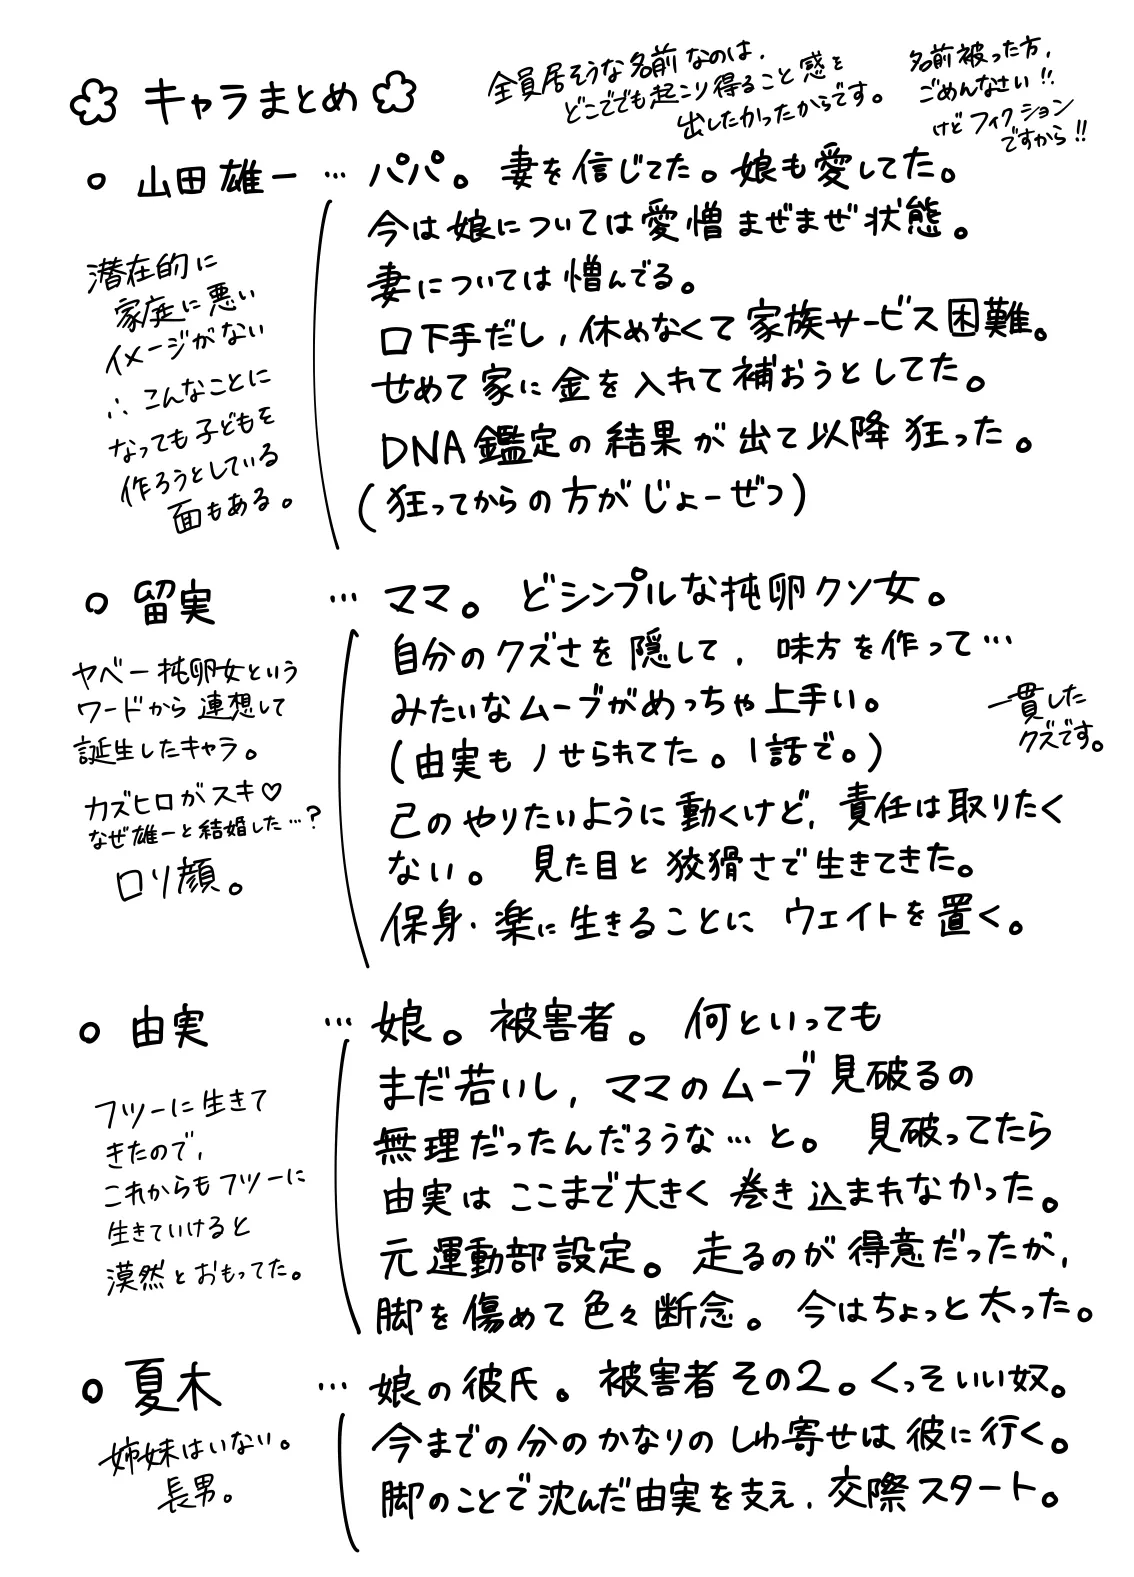 キャラまとめ
全員居そうな名前なのは、
どこででも起こり得ること感を
出したかったからです。
名前被った方、
ごめんなさい!!
けどフィクション
ですから!!
○ 山田雄一 … パパ。妻を信じてた。娘も愛してた。
今は娘については愛憎まぜまぜ状態。
妻については憎んでる。
口下手だし、休めなくて家族サービス困難。
せめて家に金を入れて補おうとしてた。
DNA鑑定の結果が出て以降狂った。
(狂ってからの方がじょーぜつ)
潜在的に
家庭に悪い
イメージがない
∴こんなことに
なっても子どもを
作ろうとしている
面もある。
○ 留実 … ママ。どシンプルな托卵クソ女。
自分のクズさを隠して、味方を作って…
みたいなムーブがめっちゃ上手い。
(由実もノせられてた。1話で。)
己のやりたいように動くけど、責任は取りたく
ない。見た目と狡猾さで生きてきた。
保身・楽に生きることにウェイトを置く。
一貫した
クズです。
ヤベー托卵女という
ワードから連想して
誕生したキャラ。
カズヒロがスキ♡
なぜ雄一と結婚した…?
ロリ顔。
○ 由実 … 娘。被害者。何といっても
まだ若いし、ママのムーブ見破るの
無理だったんだろうな…と。見破ってたら
由実はここまで大きく巻き込まれなかった。
元運動部設定。走るのが得意だったが、
脚を傷めて色々断念。今はちょっと太った。
フツーに生きて
きたので、
これからもフツーに
生きていけると
漠然とおもってた。
○ 夏木 … 娘の彼氏。被害者その2。くっそいい奴。
今までの分のかなりのしわ寄せは彼に行く。
脚のことで沈んだ由実を支え、交際スタート。
姉妹はいない。
長男。